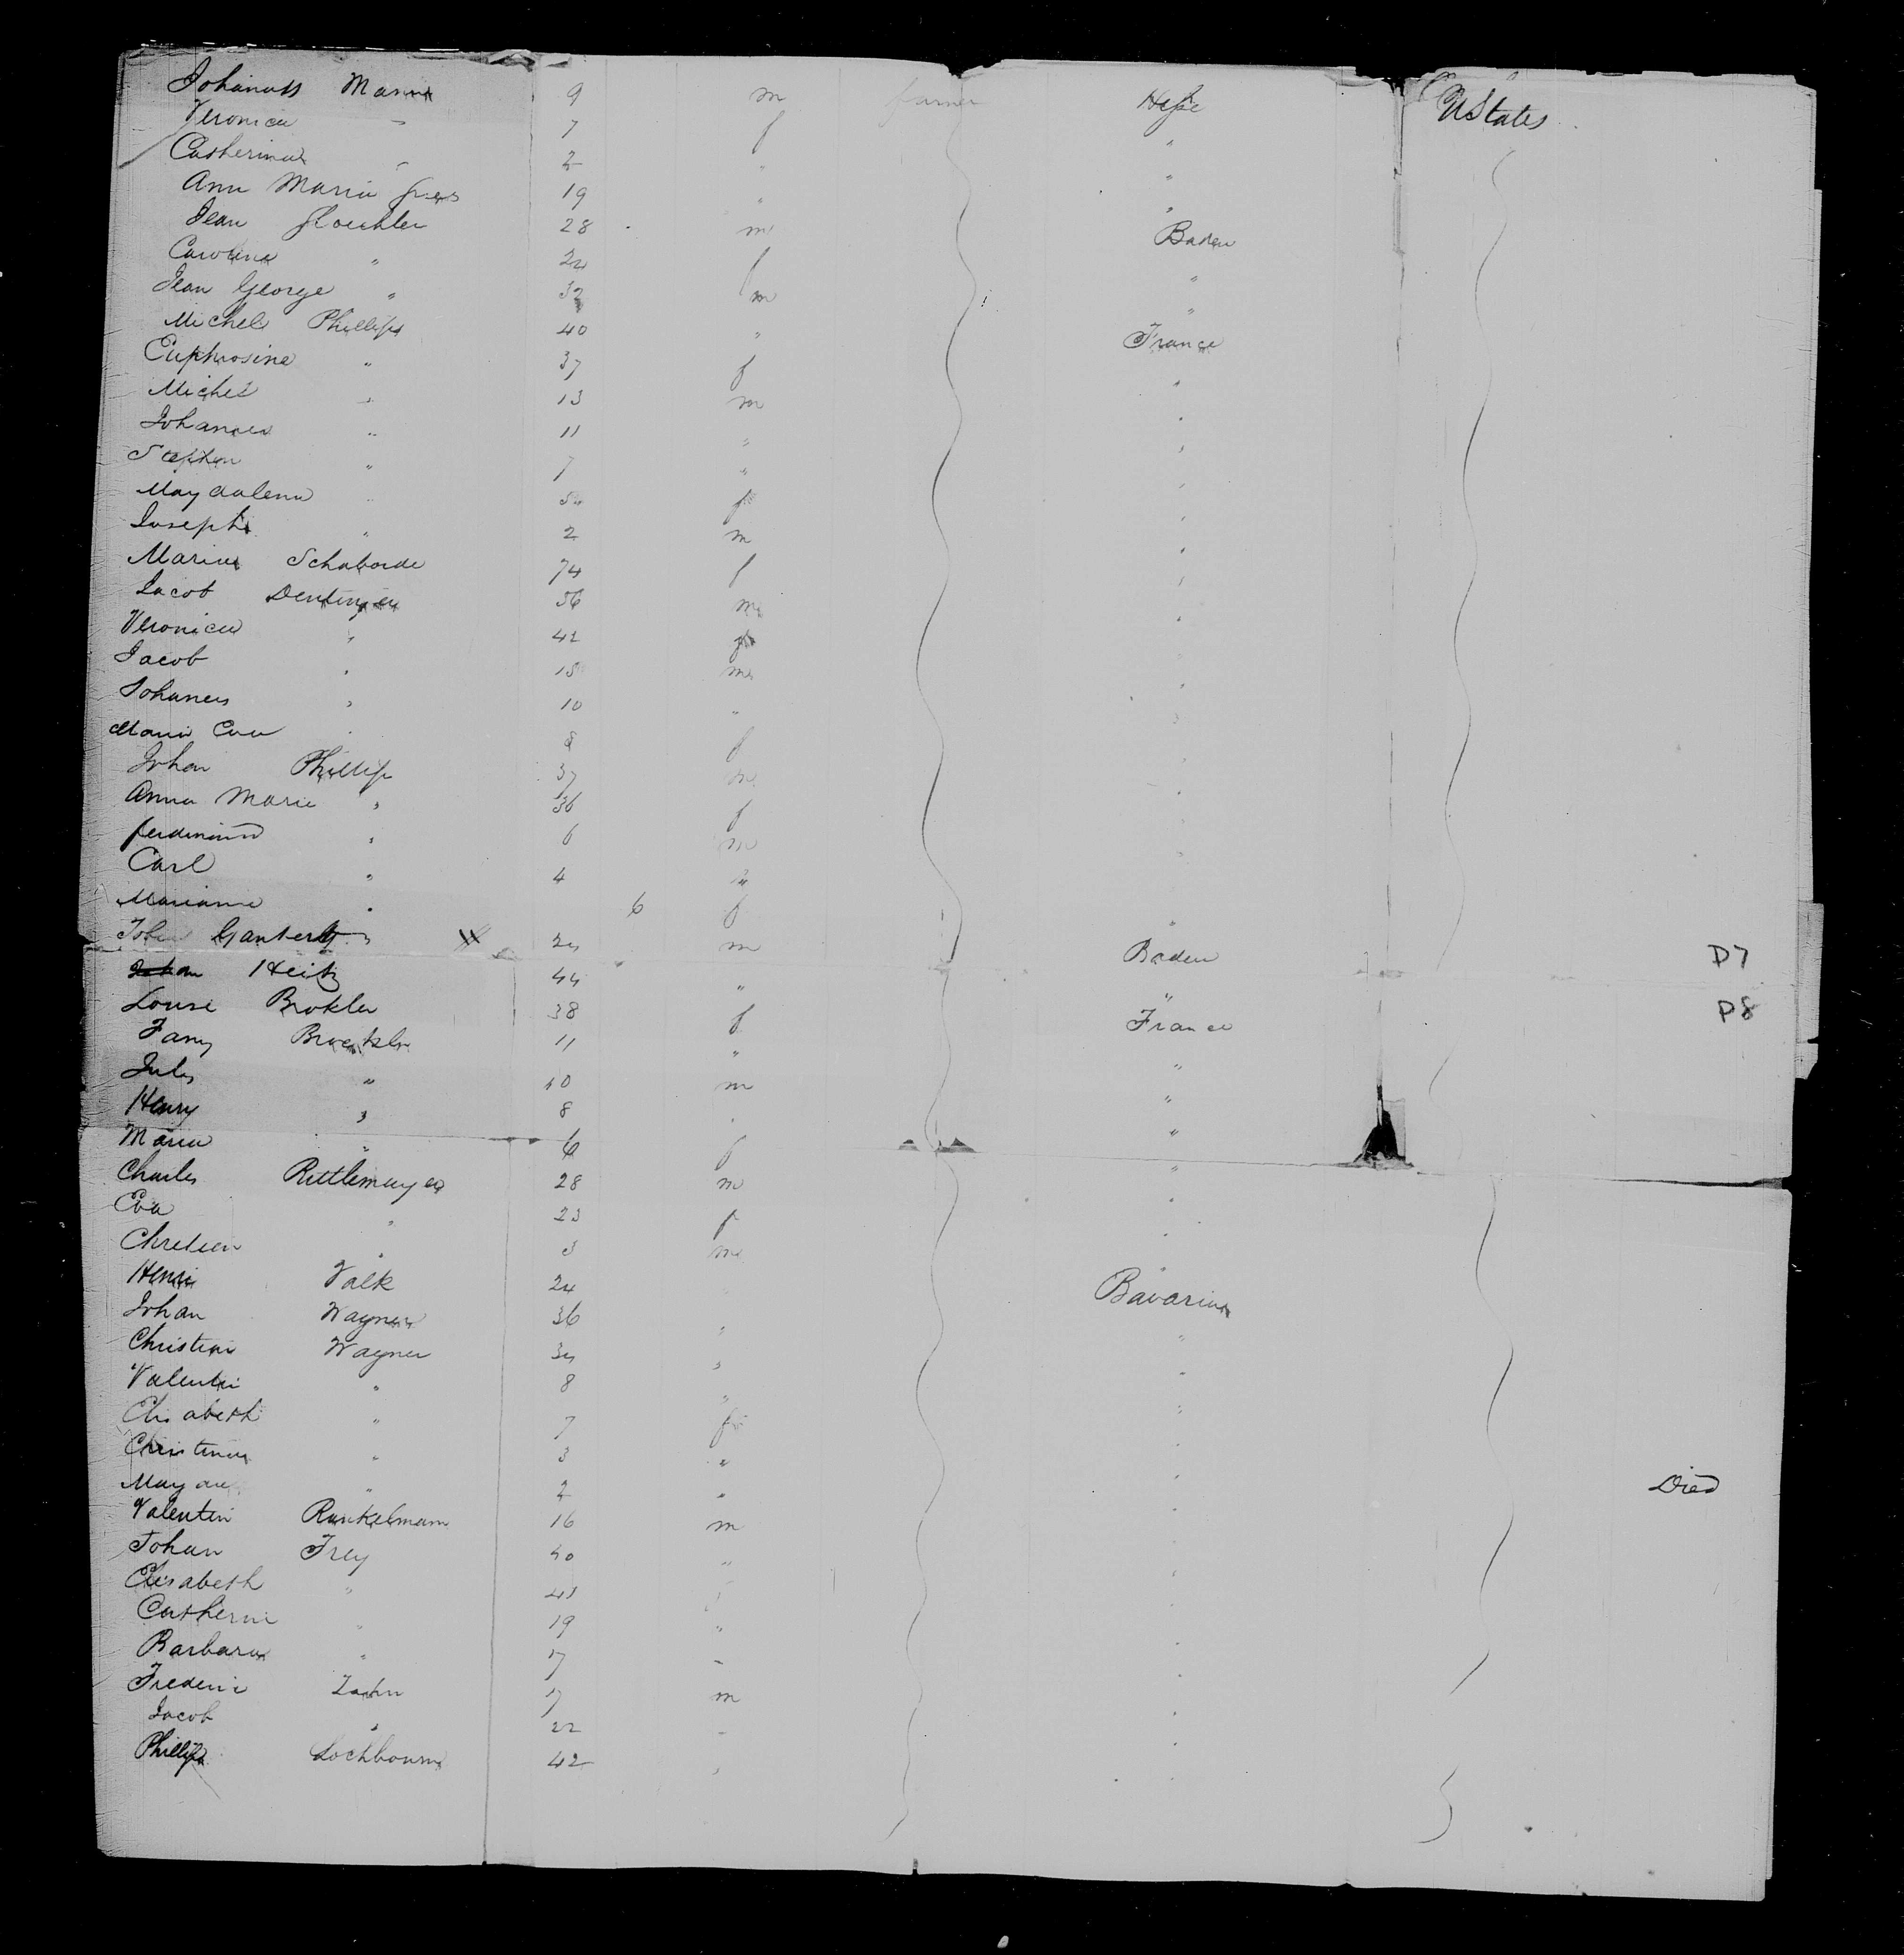 Johanats Mann 9 m farmer Hesse UStates
Veronica " 7 f "
Catherina " 2 " "
Ann Maria 19 " "
Jean Gloeckler 28 m Baden
Carolina " 24 f "
Jean George " 32 m "
Michel Phillips 40 " France
Euphrosine " 37 f "
Michel " 13 m "
Johannes " 11 " "
Stephen " 7 " "
Magdalena " f "
Joseph " 2 m "
Maria Schaborde 74 f "
Jacob Dentinger 56 m "
Veronica " 42 f "
Jacob " 15 m "
Johanes " 10 " "
Maria Eva " 8 f "
Johan Phillip 37 m "
Anna Marie " 36 f "
ferdinand " 6 m "
Carl " 4 " "
Mariane " 6 f "
Ganter 24 m Baden D7
Johan Heitz 44 " "
Louise Brokler 38 f France D8
Fany Broekler 11 " "
Jules " 10 m "
Henry " 8 " "
Maria " 6 f "
Charles Rittlemayer 28 m "
Eva " 23 f "
Chretien " 3 m "
Henri Valk 24 Bavaria
Johan Wagner 36 " "
Christian Wagner 34 " "
Valentin " 8 " "
Elisabeth " 7 f "
Christina " 3 " "
" 2 " " Died
Valentin Runkelmann 16 m "
Johan Frey 40 " "
Elisabeth " 43 f "
Catherine " 19 " "
Barbara " 17 " "
Frederic Zahn 17 m "
Jacob " 22 " "
Phillip Lochbourm 42 " "